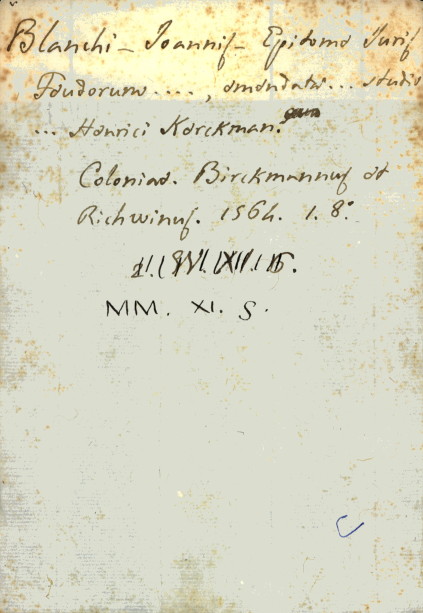 Blanchi - Joannis - Epidome Juris
Feudorum ...., emendata ... studio
... Henrici Kerckman.
Coloniae. Birckmannus et
Richwinus. 1564. 1. 8.°
MM. XI. S.